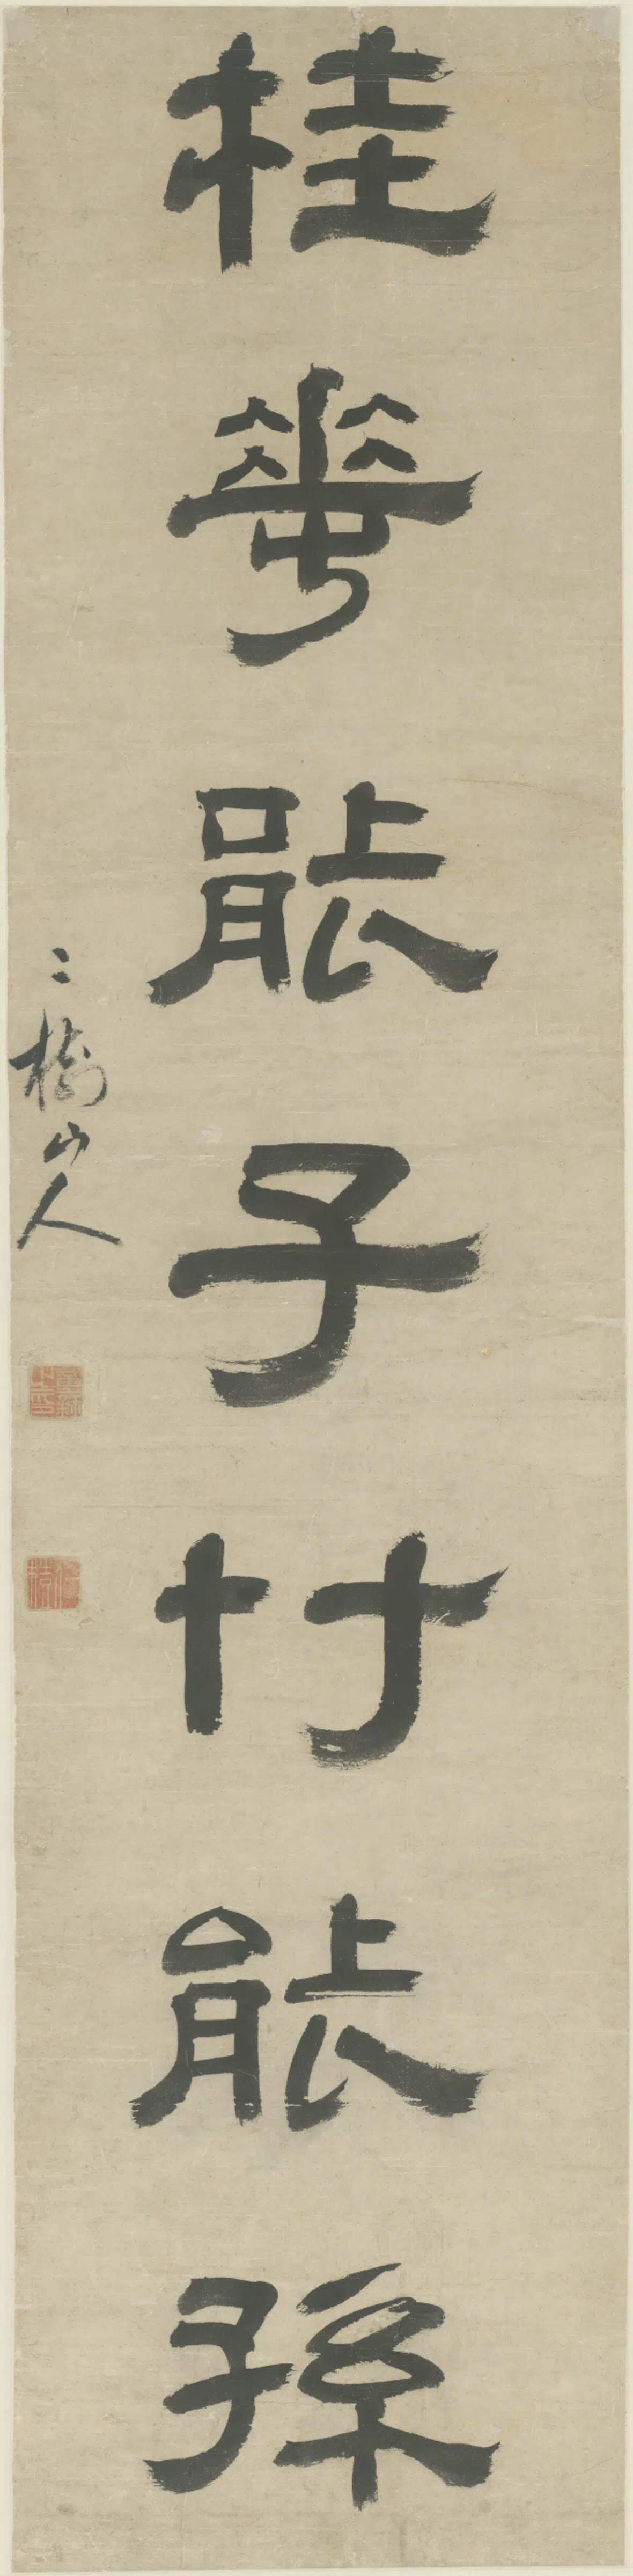 桂華能子竹能孫
二樹山人